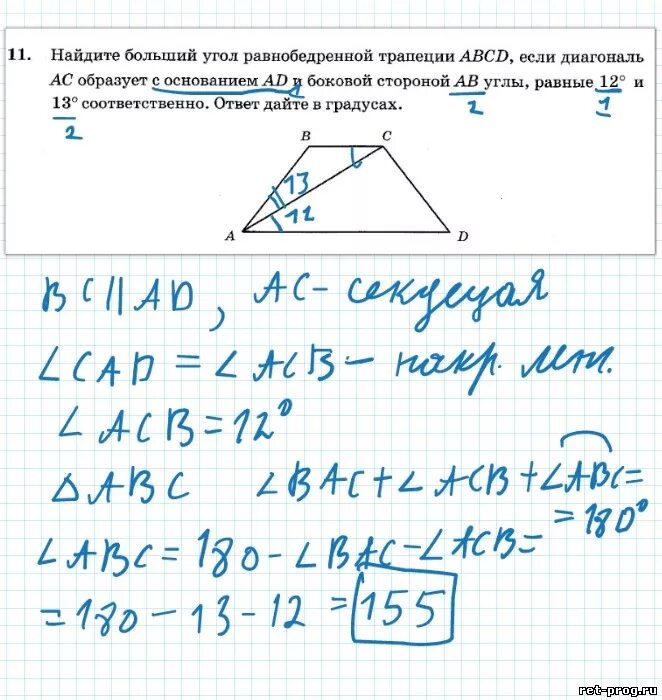 11. Найдите больший угол равнобедренной трапеции ABCD, если диагональ
AC образует с основанием AD и боковой стороной AB углы, равные 12° и
13° соответственно. Ответ дайте в градусах.
1
2
1
2
B
C
13
12
A
D
BC || AD, AC - секущая
∠CAD = ∠ACB - накр. леж.
∠ACB = 12°
△ABC ∠BAC + ∠ACB + ∠ABC =
= 180°
∠ABC = 180 - ∠BAC - ∠ACB =
= 180 - 13 - 12 = 155
ret-prog.ru